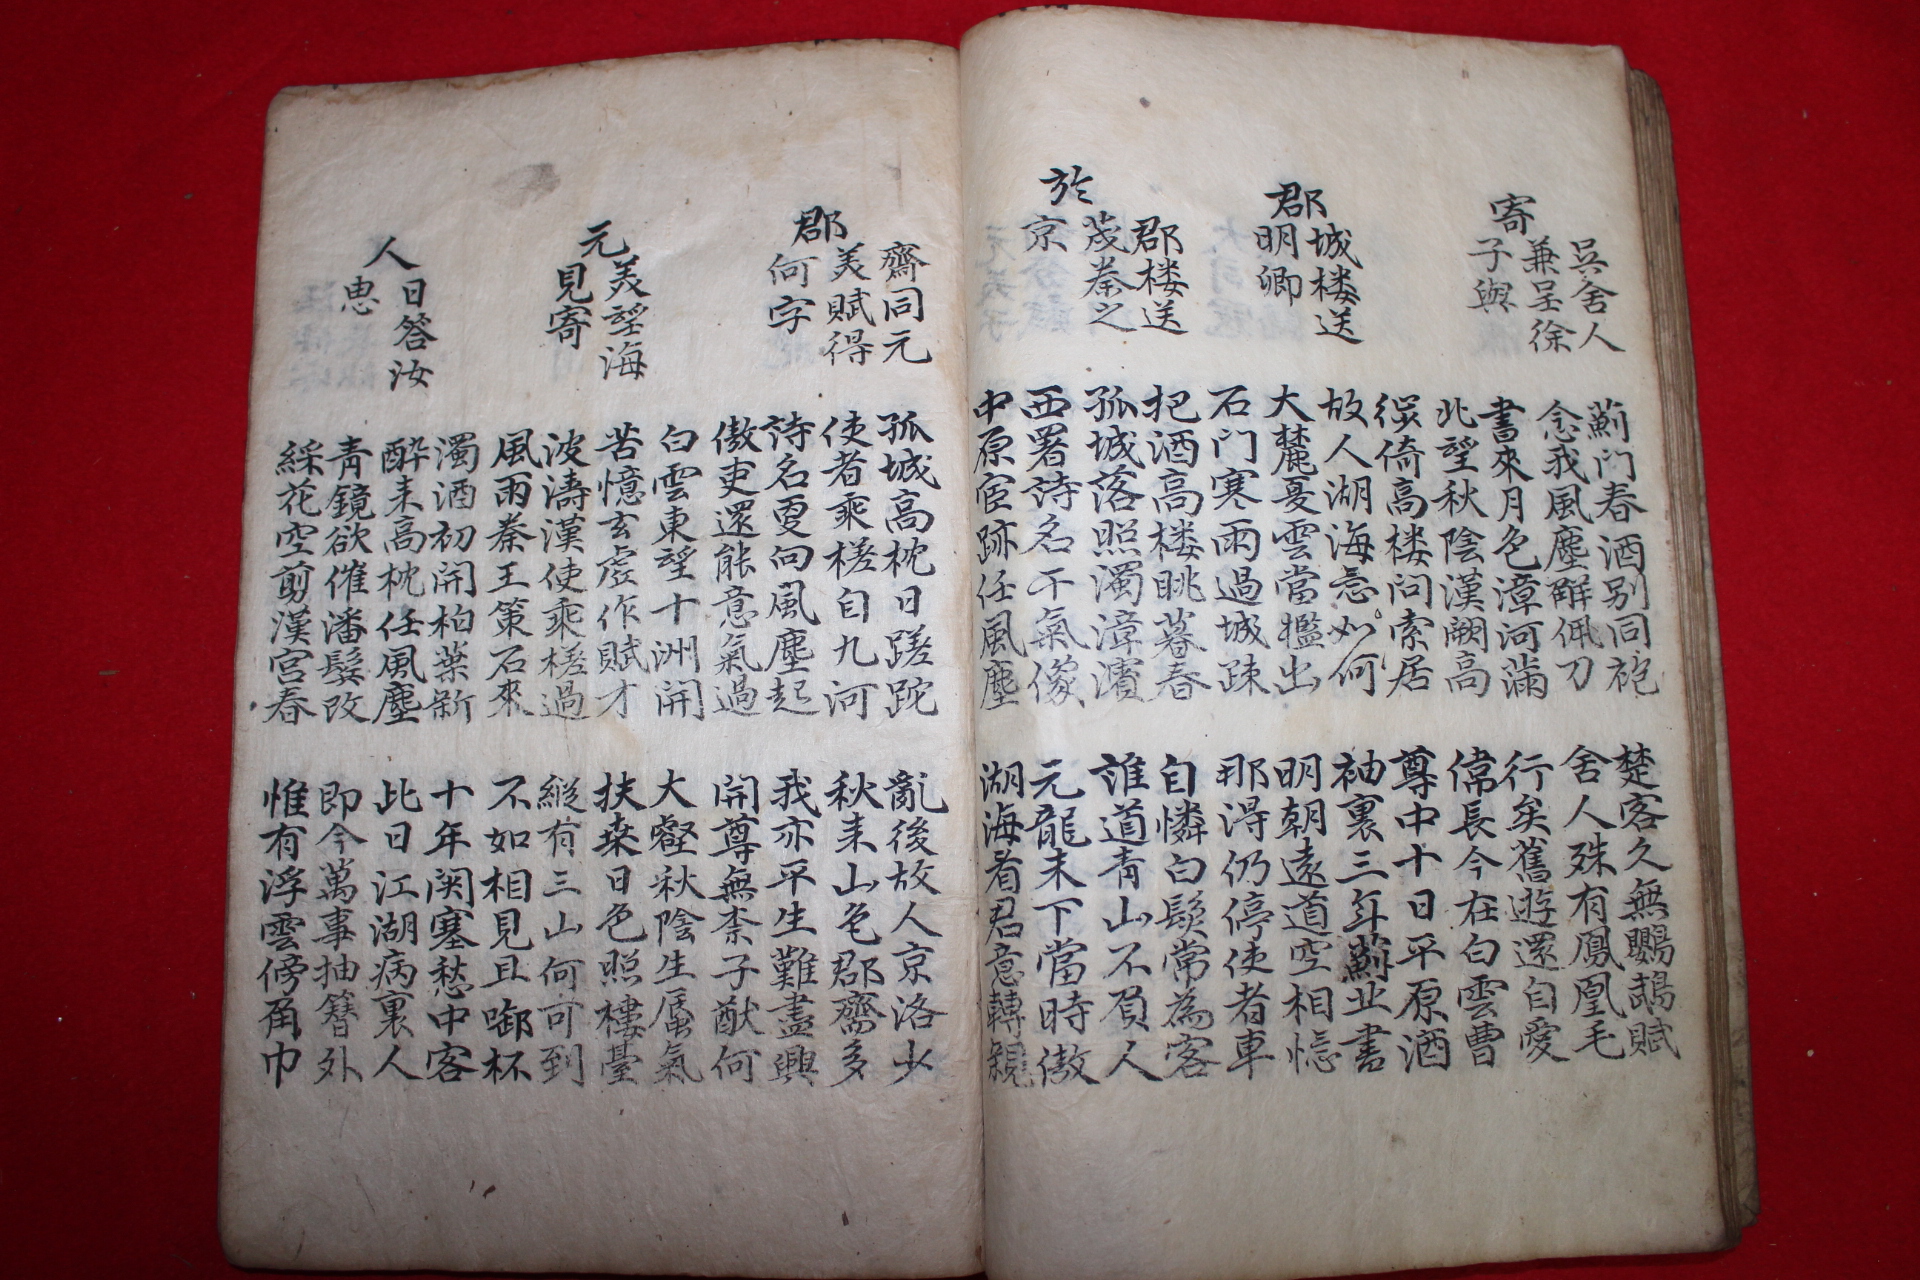 寄吳舍人
兼呈徐
子與
薊門春酒別同袍
楚客久無鸚鵡賦
念我風塵觧佩刀
舍人殊有鳳凰毛
書來月色漳河滿
行矣舊遊還自愛
北望秋陰漢闕高
偉長今在白雲曹
郡城楼送
明卿
徙倚高楼问索居
尊中十日平原酒
故人湖海意如何
袖裏三年薊北書
大麓夏雲當檻出
明朝遠道空相憶
石门寒雨過城踈
那得仍停使者車
於郡楼送
茂秦之
京
把酒高楼眺暮春
自憐白鬂常為客
孤城落照濁漳濱
誰道青山不負人
西署詩名干氣像
元龍未下當時傲
中原宦跡任風塵
湖海看君意轉親
郡齋同元
美賦得
何字
孤城高枕日蹉跎
亂後故人京洛少
使者乘槎自九河
秋来山色郡齋多
詩名更向風塵起
我亦平生難盡興
傲吏還能意氣過
開尊無柰子猷何
元美望海
見寄
白雲東望十洲開
大壑秋陰生蜃氣
苦憶玄虛作賦才
扶桒日色照樓臺
波濤漢使乘槎過
縱有三山何可到
風雨秦王策石來
不如相見且啣杯
人日答汝
思
濁酒初開柏葉新
十年関塞愁中客
酔来高枕任風塵
此日江湖病裏人
青鏡欲催潘鬂改
即今萬事抽簪外
綵花空剪漢宮春
惟有浮雲傍角巾